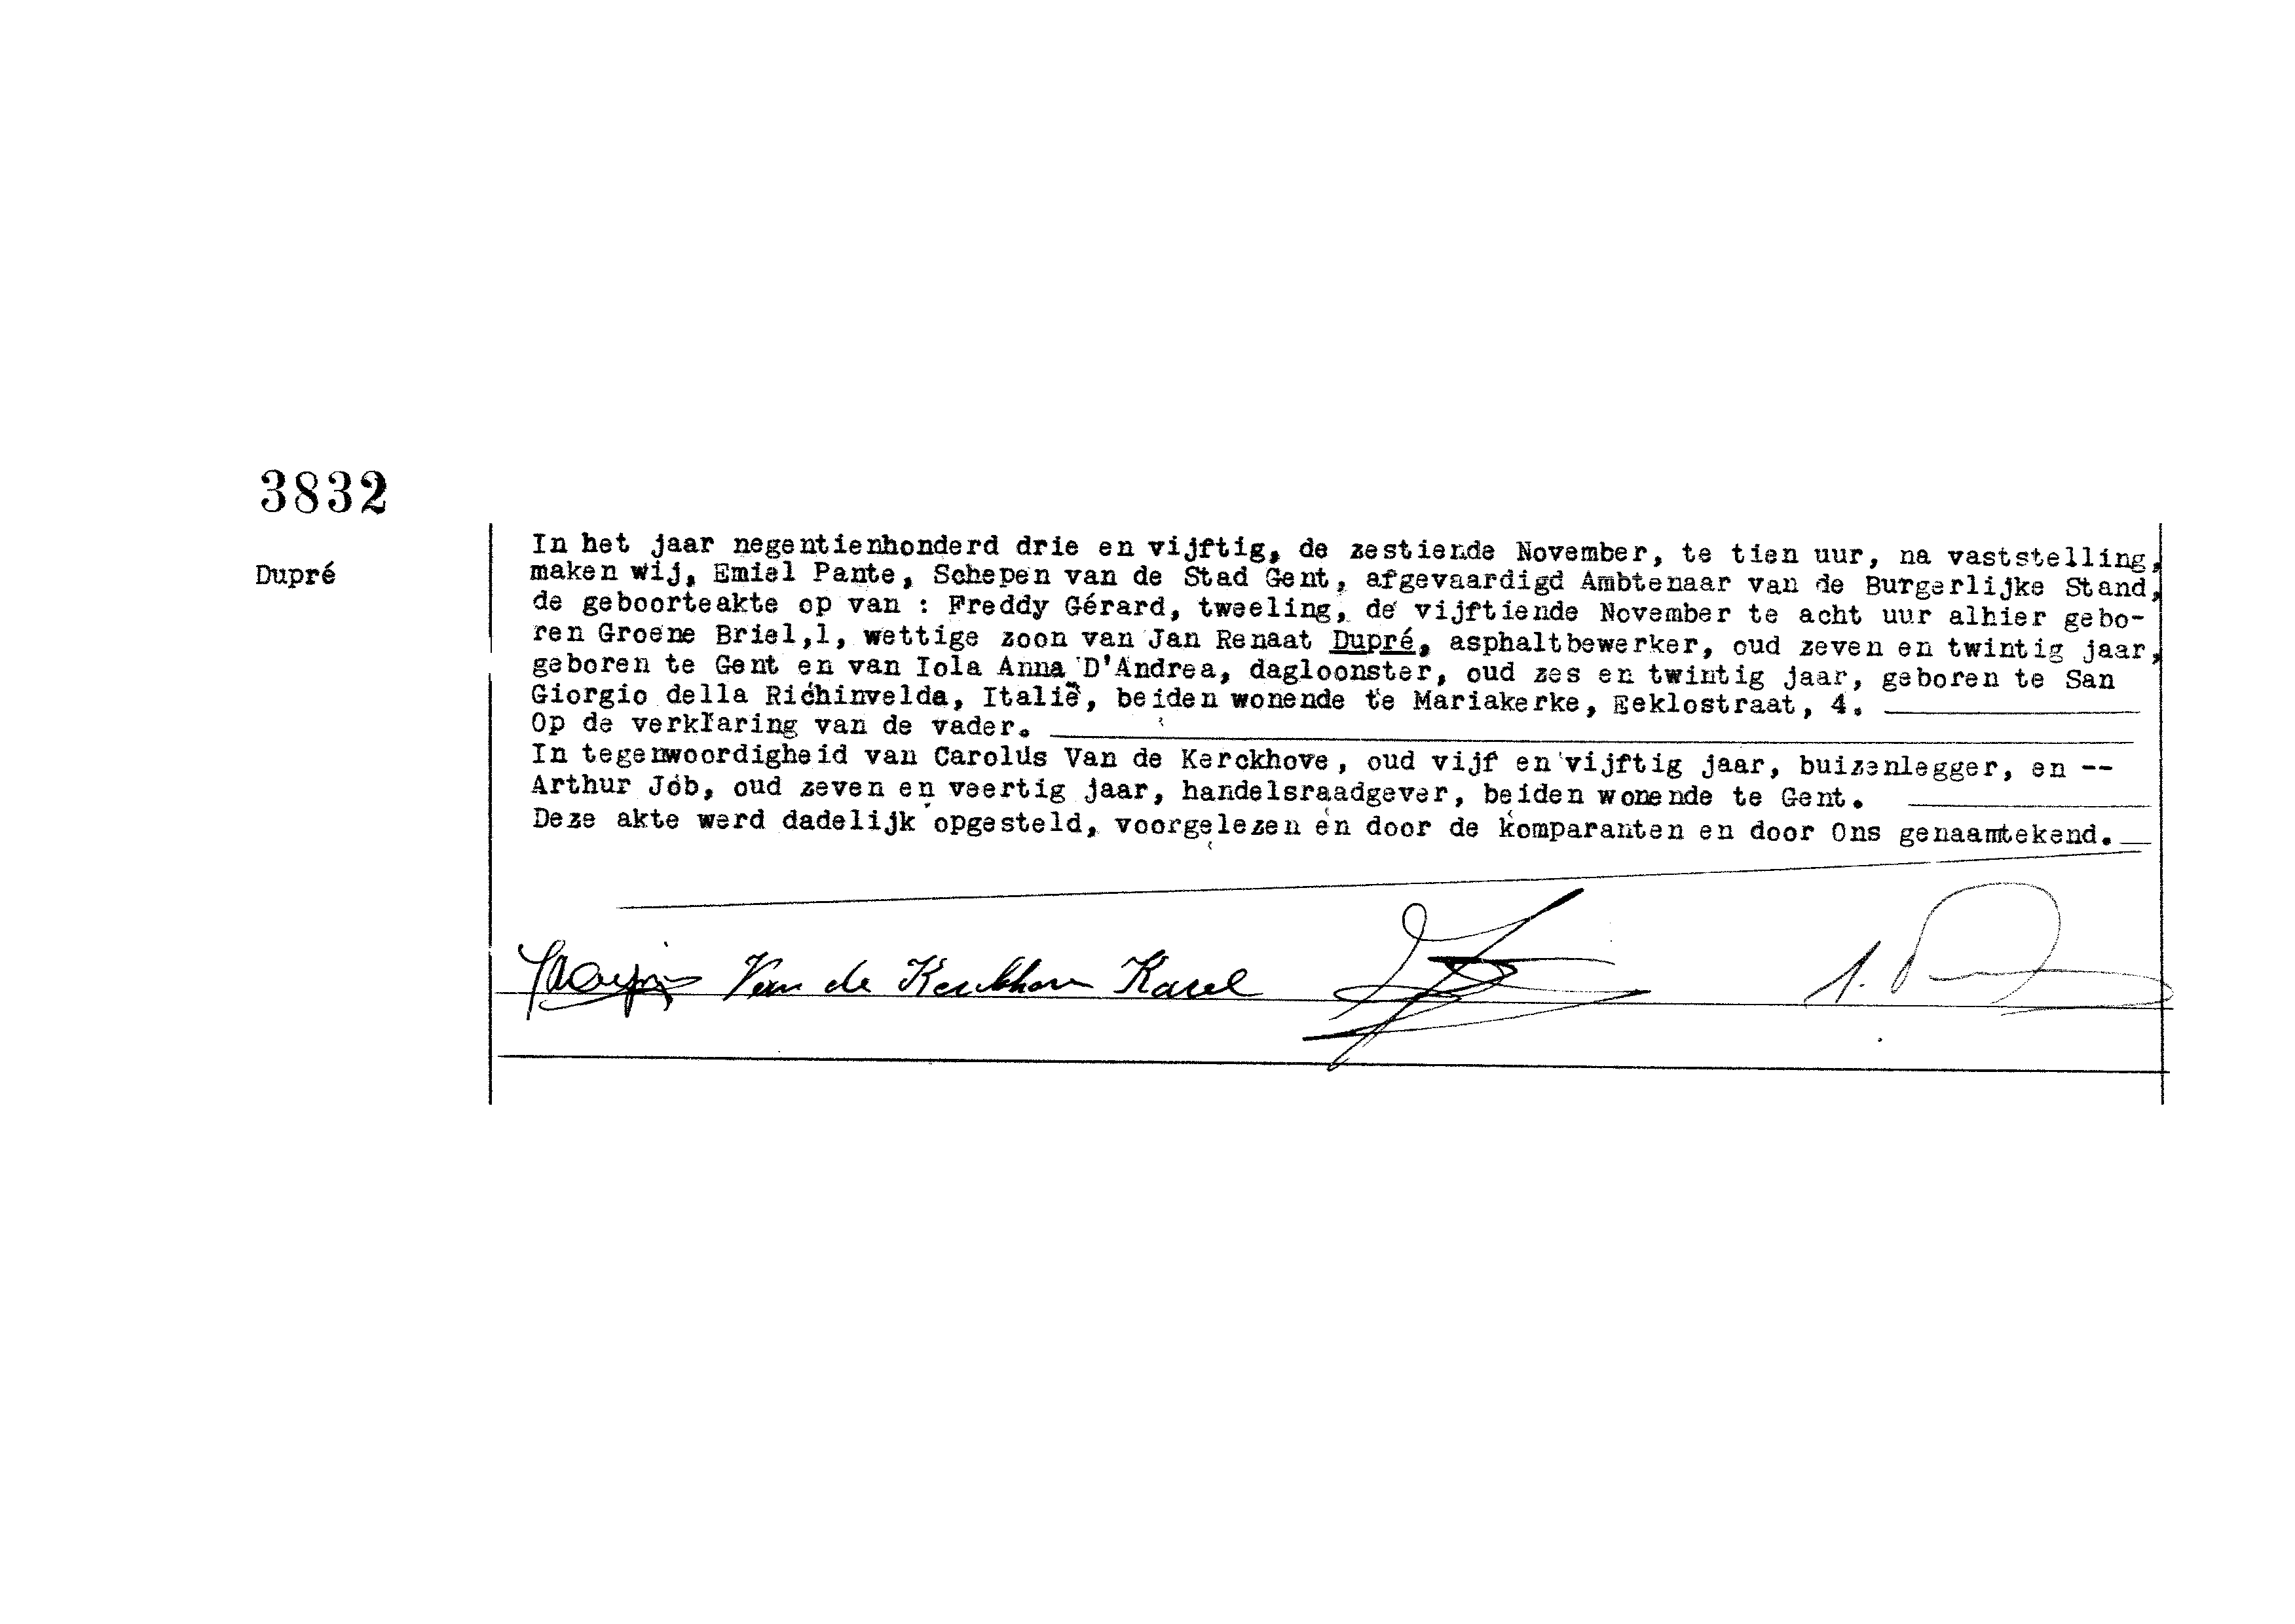 3832
Dupré
In het jaar negentienhonderd drie en vijftig, de zestiende November, te tien uur, na vaststelling,
maken wij, Emiel Pante, Schepen van de Stad Gent, afgevaardigd Ambtenaar van de Burgerlijke Stand,
de geboorteakte op van : Freddy Gérard, tweeling, de vijftiende November te acht uur alhier gebo-
ren Groene Briel,1, wettige zoon van Jan Renaat Dupré, asphaltbewerker, oud zeven en twintig jaar,
geboren te Gent en van Iola Anna D'Andrea, dagloonster, oud zes en twintig jaar, geboren te San
Giorgio della Richinvelda, Italië, beiden wonende te Mariakerke, Eeklostraat, 4.
Op de verklaring van de vader.
In tegenwoordigheid van Carolus Van de Kerckhove, oud vijf en vijftig jaar, buizenlegger, en --
Arthur Job, oud zeven en veertig jaar, handelsraadgever, beiden wonende te Gent.
Deze akte werd dadelijk opgesteld, voorgelezen en door de komparanten en door Ons genaamtekend.
Van de Kerckhove Karel